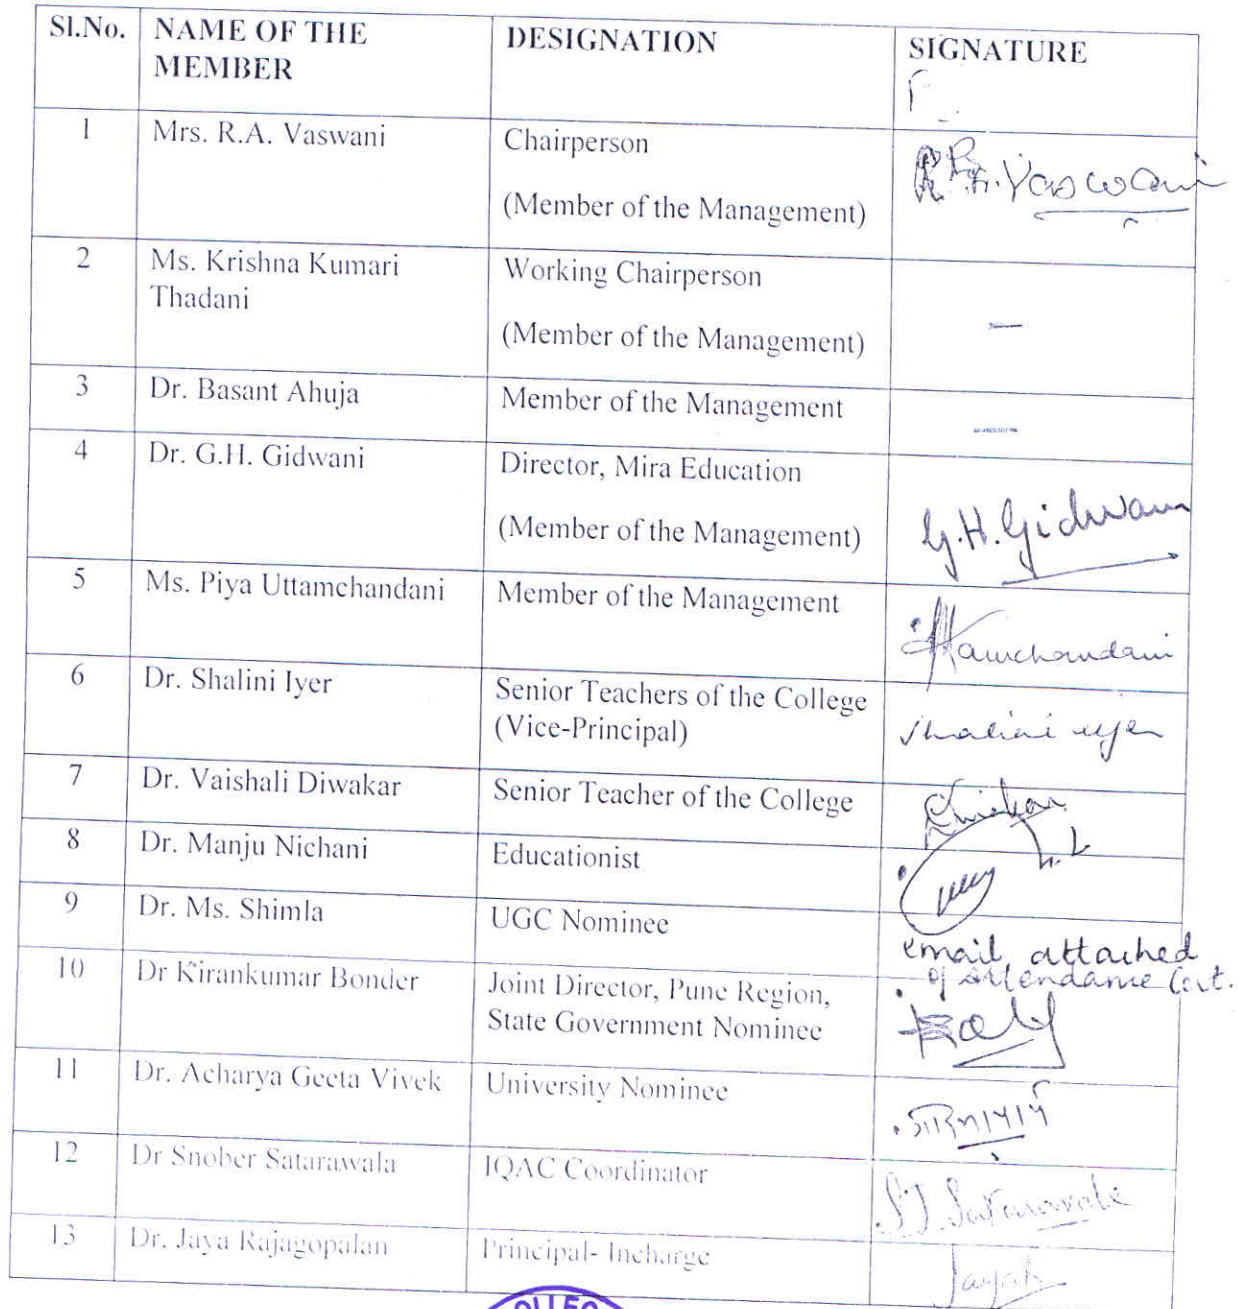 Sl.No. NAME OF THE MEMBER DESIGNATION SIGNATURE
1 Mrs. R.A. Vaswani Chairperson R.A. Vaswani
(Member of the Management)
2 Ms. Krishna Kumari Thadani Working Chairperson —
(Member of the Management)
3 Dr. Basant Ahuja Member of the Management —
4 Dr. G.H. Gidwani Director, Mira Education G.H. Gidwani
(Member of the Management)
5 Ms. Piya Uttamchandani Member of the Management
6 Dr. Shalini Iyer Senior Teachers of the College Shalini Iyer
(Vice-Principal)
7 Dr. Vaishali Diwakar Senior Teacher of the College
8 Dr. Manju Nichani Educationist
9 Dr. Ms. Shimla UGC Nominee email attached
of Attendance Cert.
10 Dr Kirankumar Bonder Joint Director, Pune Region,
State Government Nominee
11 Dr. Acharya Geeta Vivek University Nominee
12 Dr Snober Satarawala IQAC Coordinator S.J. Satarawala
13 Dr. Jaya Rajagopalan Principal- Incharge